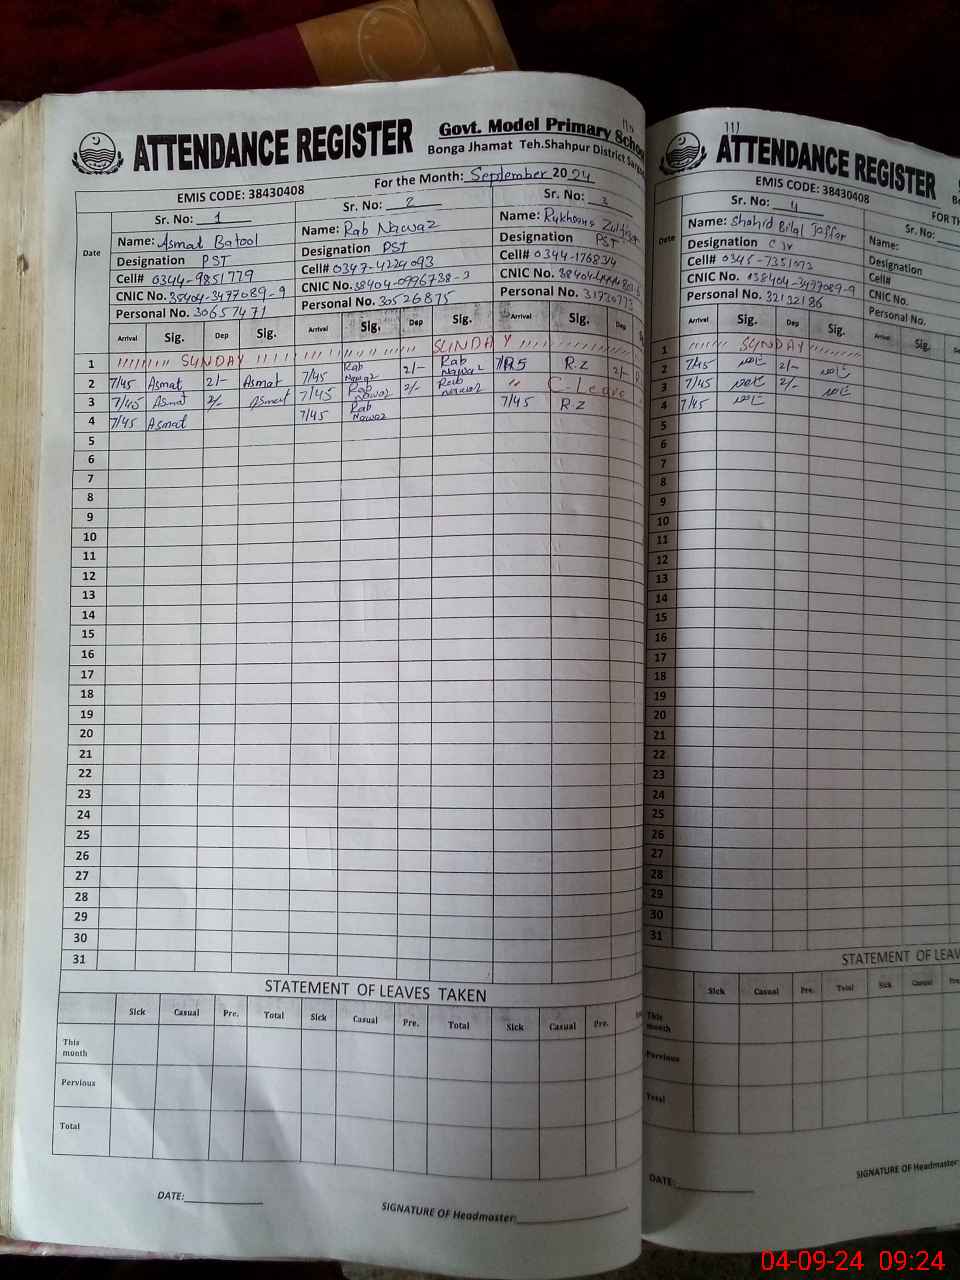 ATTENDANCE REGISTER
Govt. Model Primary School
Bonga Jhamat Teh.Shahpur District
EMIS CODE: 38430408
For the Month: September 2024
Sr. No: 1
Sr. No: 2
Sr. No: 3
Date
Name: Asmat Batool
Name: Rab Nawaz
Name: Rukhsana
Designation PST
Designation PST
Designation PST
Cell# 0344-9851779
Cell# 0347-4224093
Cell# 0344-176834
CNIC No. 38404-3477089-9
CNIC No. 38404-0996738-3
CNIC No.
Personal No. 30657471
Personal No. 30526875
Personal No. 31720773
Arrival Sig. Dep Sig. Arrival Sig. Dep Sig. Arrival Sig. Dep
1 SUNDAY SUNDAY
2 7/45 Asmat 2/- Asmat 7/45 Rab Nawaz 2/- Rab Nawaz R.Z 2/-
3 7/45 Asmat 2/- Asmat 7/45 Rab Nawaz 2/- Rab Nawaz " C-Leave
4 7/45 Asmat 7/45 Rab Nawaz 7/45 R.Z
5
6
7
8
9
10
11
12
13
14
15
16
17
18
19
20
21
22
23
24
25
26
27
28
29
30
31
STATEMENT OF LEAVES TAKEN
Sick Casual Pre. Total Sick Casual Pre. Total Sick Casual Pre.
This month
Pervious
Total
DATE:
SIGNATURE OF Headmaster:
111
ATTENDANCE REGISTER
EMIS CODE: 38430408
FOR TH
Sr. No: 4
Sr. No:
Date
Name: Shahid Bilal Jaffar
Name:
Designation
Designation
Cell# 0345-7351073
Cell#
CNIC No. 38404-3477089-9
CNIC No.
Personal No. 32132186
Personal No.
Arrival Sig. Dep Sig. Arrival Sig. Dep
1 SUNDAY
2 7/45 2/-
3 7/45 2/-
4 7/45
5
6
7
8
9
10
11
12
13
14
15
16
17
18
19
20
21
22
23
24
25
26
27
28
29
30
31
STATEMENT OF LEAV
Sick Casual Pre. Total Sick Casual Pre.
This month
Pervious
Total
DATE:
SIGNATURE OF Headmaster:
04-09-24 09:24